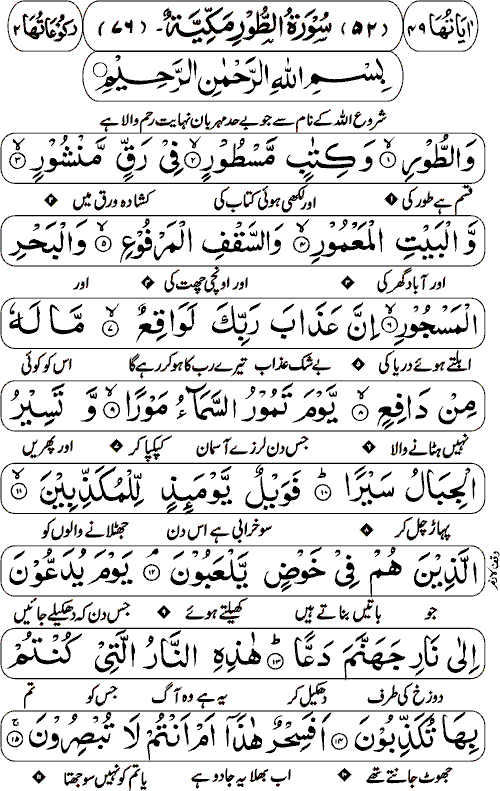 اٰیَاتُهَا ۴۹ (۵۲) سُوْرَةُ الطُّوْرِ مَكِّيَّةٌ - (۷۶) رُكُوْعَاتُهَا ۲
بِسْمِ اللّٰهِ الرَّحْمٰنِ الرَّحِيْمِ
شروع اللہ کے نام سے جو بے حد مہربان نہایت رحم والا ہے
وَالطُّوْرِ ۙ﴿۱﴾ وَكِتٰبٍ مَّسْطُوْرٍ ۙ﴿۲﴾ فِيْ رَقٍّ مَّنْشُوْرٍ ۙ﴿۳﴾
قسم ہے طور کی ۱ اور لکھی ہوئی کتاب کی کشادہ ورق میں ۲
وَّالْبَيْتِ الْمَعْمُوْرِ ۙ﴿۴﴾ وَالسَّقْفِ الْمَرْفُوْعِ ۙ﴿۵﴾ وَالْبَحْرِ
اور آباد گھر کی ۳ اور اونچی چھت کی ۴ اور
الْمَسْجُوْرِ ۙ﴿۶﴾ اِنَّ عَذَابَ رَبِّكَ لَوَاقِعٌ ۙ﴿۷﴾ مَّا لَهٗ
ابلتے ہوئے دریا کی ۵ بے شک عذاب تیرے رب کا ہو کر رہے گا اس کو کوئی
مِنْ دَافِعٍ ۙ﴿۸﴾ يَّوْمَ تَمُوْرُ السَّمَآءُ مَوْرًا ۙ﴿۹﴾ وَّ تَسِيْرُ
نہیں ہٹانے والا ۶ جس دن لرزے آسمان کپکپا کر ۷ اور پھریں
الْجِبَالُ سَيْرًا ؕ﴿۱۰﴾ فَوَيْلٌ يَّوْمَئِذٍ لِّلْمُكَذِّبِيْنَ ۙ﴿۱۱﴾
پہاڑ چل کر ۸ سو خرابی ہے اس دن جھٹلانے والوں کو
الَّذِيْنَ هُمْ فِيْ خَوْضٍ يَّلْعَبُوْنَ ۘ﴿۱۲﴾ يَوْمَ يُدَعُّوْنَ
وقف لازم
جو باتیں بناتے ہیں کھیلتے ہوئے ۹ جس دن کہ دھکیلے جائیں
اِلٰى نَارِ جَهَنَّمَ دَعًّا ؕ﴿۱۳﴾ هٰذِهِ النَّارُ الَّتِيْ كُنْتُمْ
دوزخ کی طرف دھکیل کر یہ ہے وہ آگ جس کو تم
بِهَا تُكَذِّبُوْنَ ﴿۱۴﴾ اَفَسِحْرٌ هٰذَاۤ اَمْ اَنْتُمْ لَا تُبْصِرُوْنَ ۚ﴿۱۵﴾
جھوٹ جانتے تھے ۱۰ اب بھلا یہ جادو ہے یا تم کو نہیں سوجھتا ۱۱